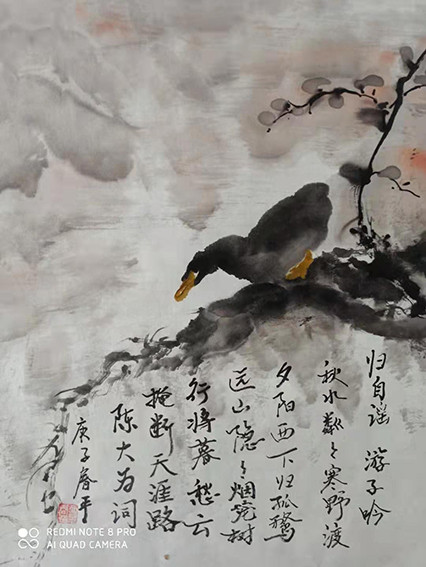 归自谣 游子吟
秋水粼々寒野渡
夕阳西下归孤鹜
远山隐々烟笼树
行将暮 愁云
掩断天涯路
陈大为词
庚子春平
REDMI NOTE 8 PRO
AI QUAD CAMERA